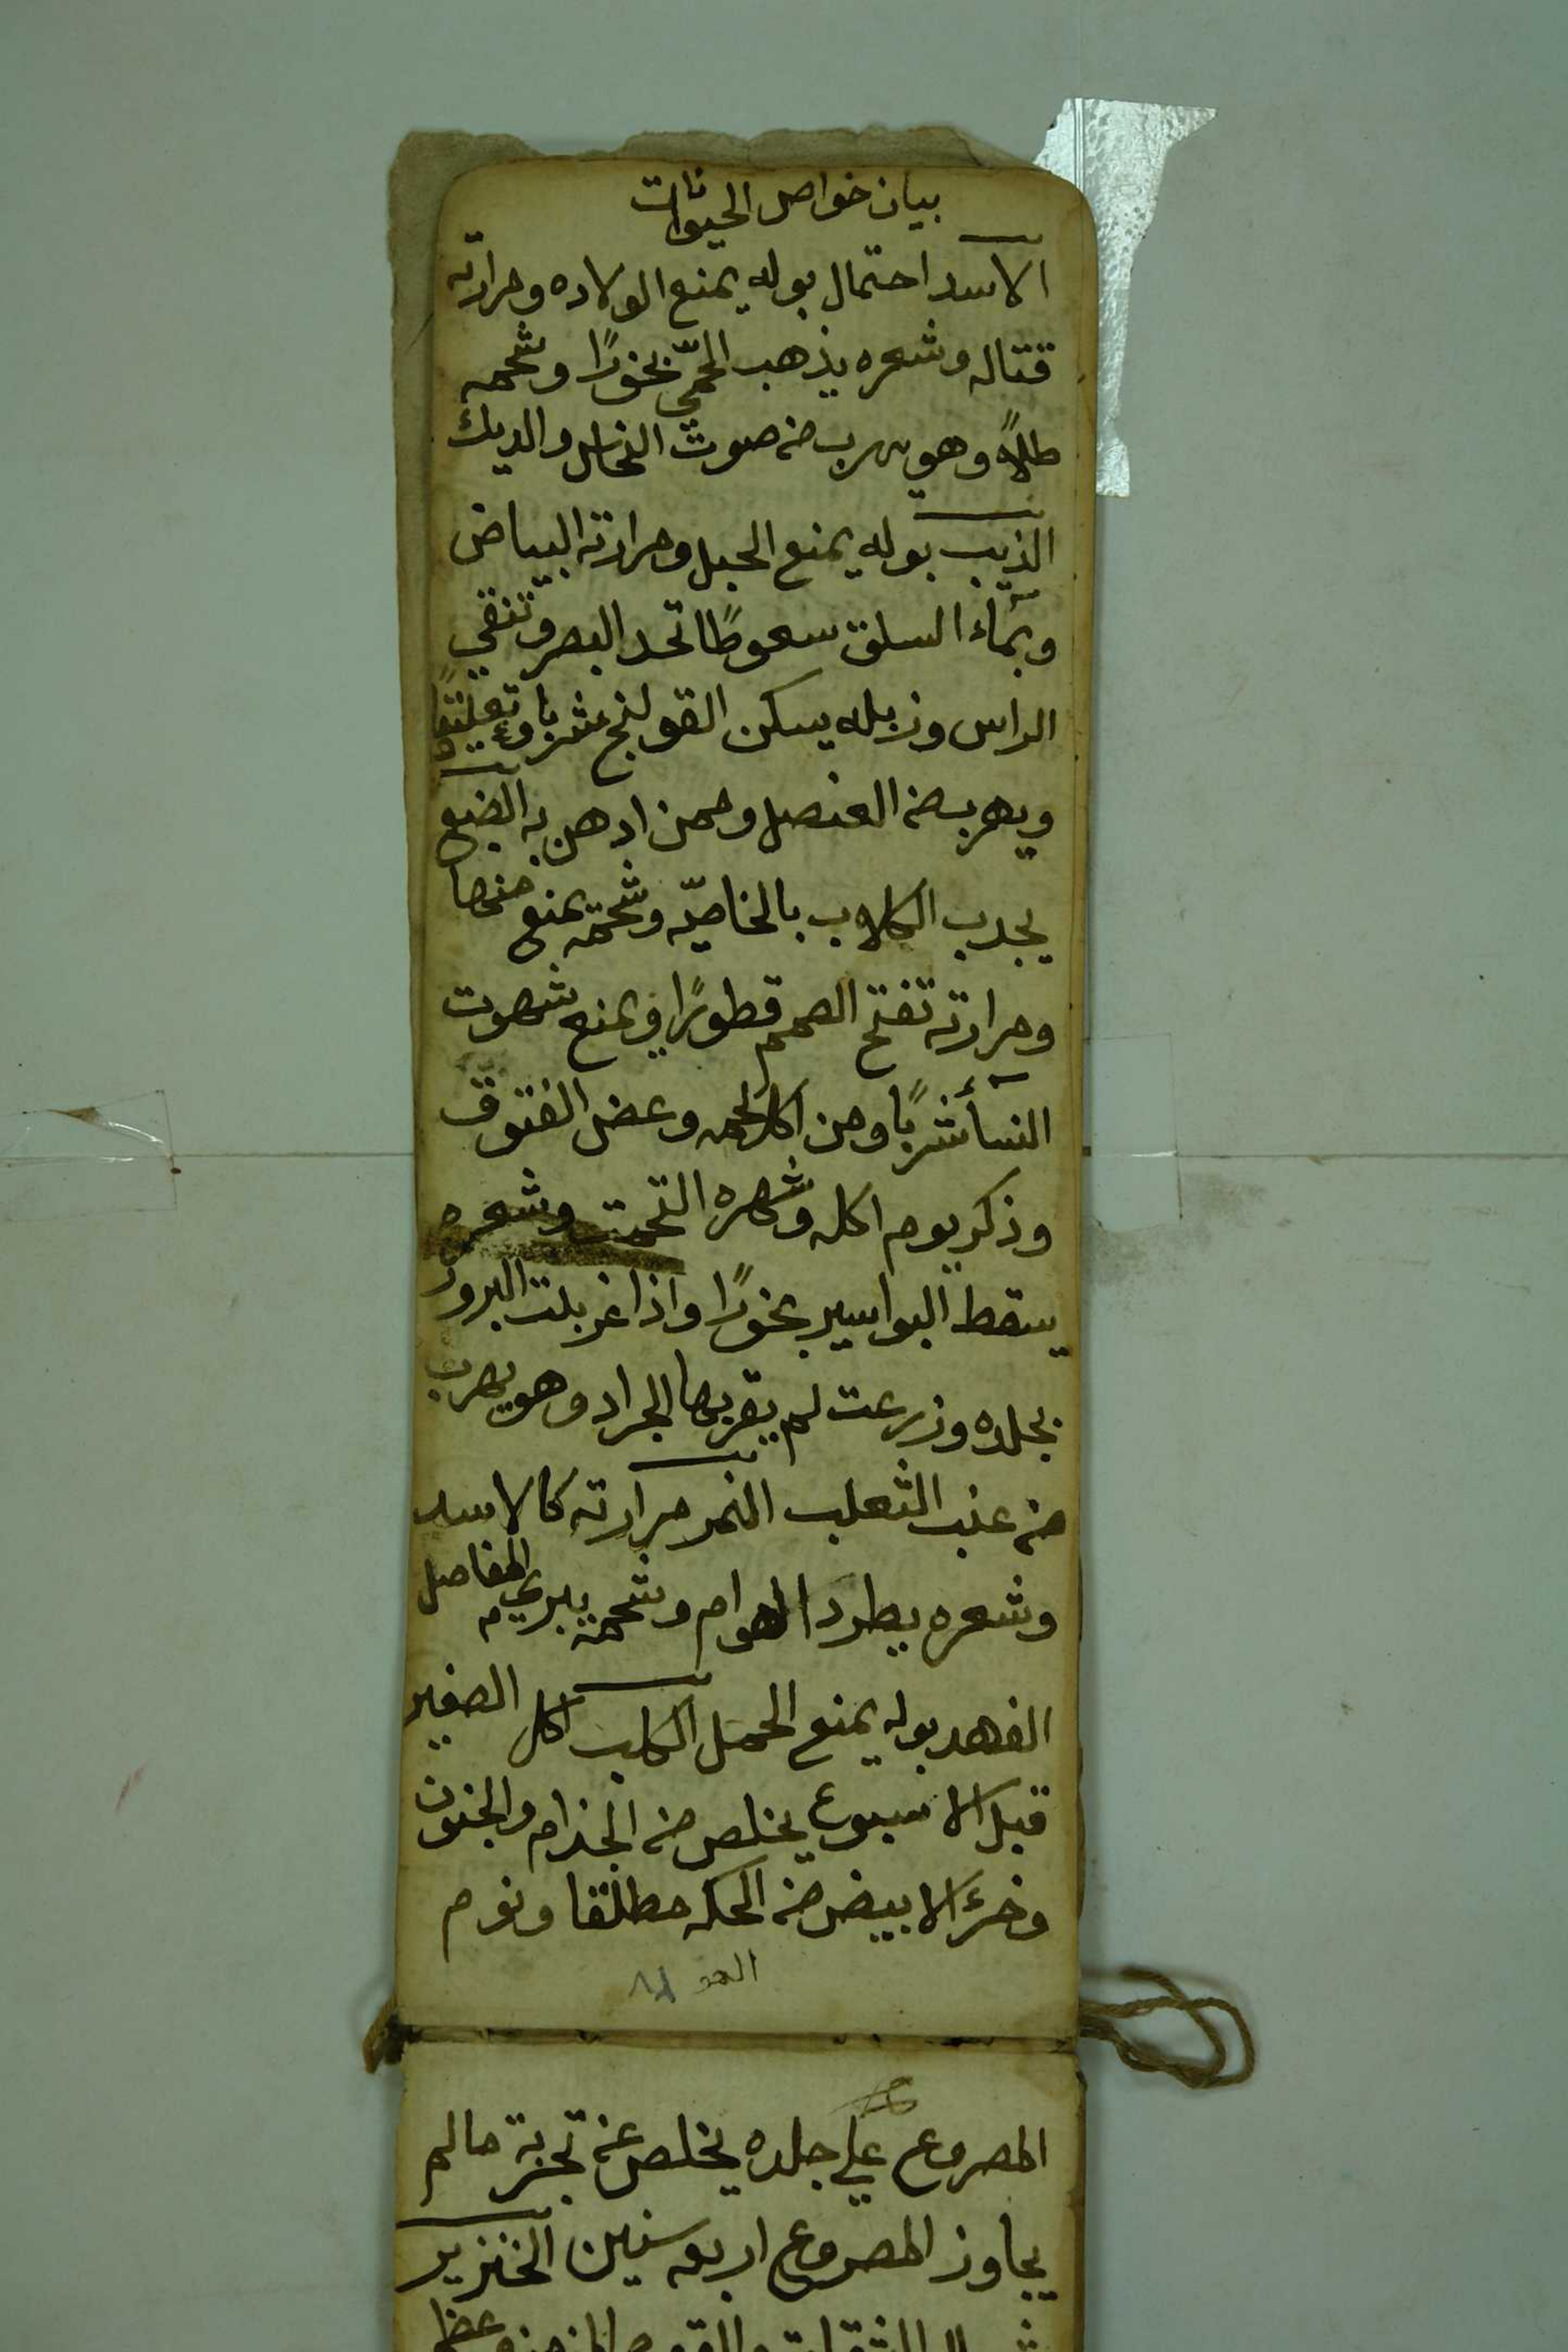 بيان خواص الحيوانات
الاسد احتمال بوله يمنع الولاده ومرارته
قتاله وشعره يذهب الحمّي بخورًا وشحمه
طلاءً وهو يهرب من صوت النحاس والديك
الذيب بوله يمنع الحبل ومرارته البياض
وبمآء السلق سعوطًا تحد البصر وتنقي
الراس وزبله يسكن القولنج شربا وتعليقًا
ويهرب من العنصل وممن ادهن به الضبع
يجدب الكلاب بالخاصيّه وشحمه يمنع منها
ومرارته تفتح الصمم قطورًا ويمنع شهوت
النسآ شربًا ومن اكل لحمه وعض الفتوق
وذكر يوم اكله وشهره التحمت وشعره
يسقط البواسير بخورًا واذا غربلت البزور
بجلده وزرعت لم يقربها الجراد وهو يهرب
من عنب الثعلب النمر مرارته كالاسد
وشعره يطرد الهوام وشحمه يبري المفاصل
الفهد بوله يمنع الحمل الكلب اكل الصغير
قبل الاسبوع يخلص من الجذام والجنون
وخرؤ الابيض من الحكه مطلقا ونوم
المصروع علي جلده يخلص عن تجربة مالم
يجاوز المصروع اربع سنين الخنزير